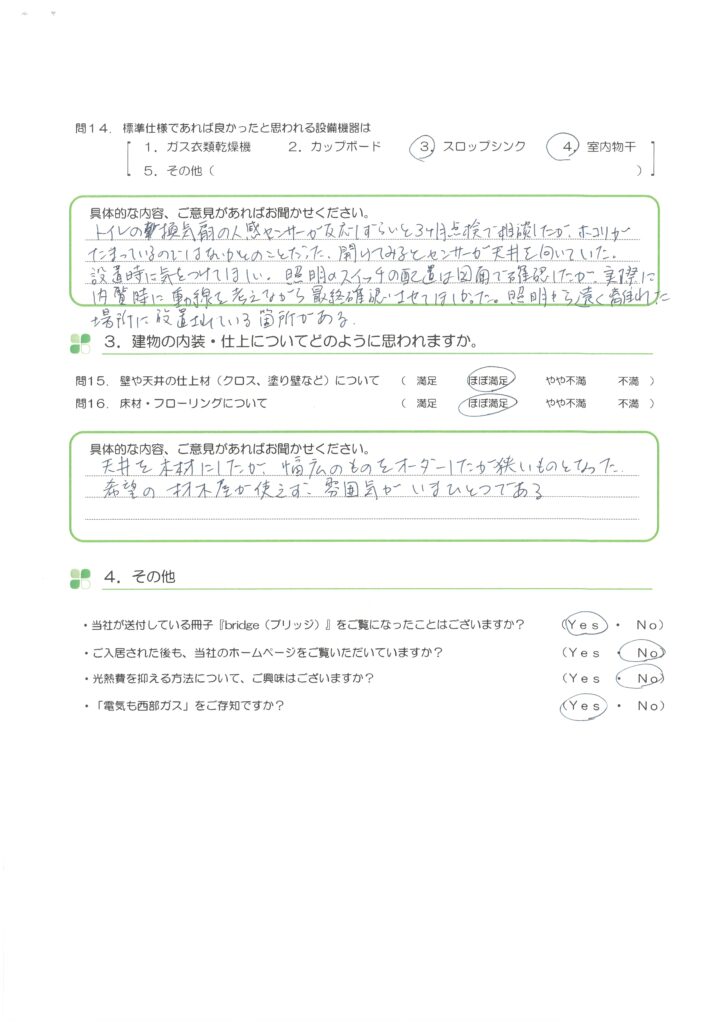 問14. 標準仕様であれば良かったと思われる設備機器は
1. ガス衣類乾燥機 2. カップボード 3. スロップシンク 4. 室内物干
5. その他 ( )
具体的な内容、ご意見があればお聞かせください。
トイレの換気扇の人感センサーが反応しずらいと3ヶ月点検で相談したが、ホコリが
たまっているのではないかとのことだった、開けてみるとセンサーが天井を向いていた。
設置時に気をつけてほしい。照明のスイッチの配置は図面で確認したが、実際に
内覧時に動線を考えながら最終確認させてほしかった。照明から遠く離れた
場所に設置されている箇所がある.
3. 建物の内装・仕上についてどのように思われますか。
問15. 壁や天井の仕上材(クロス、塗り壁など)について ( 満足 ほぼ満足 やや不満 不満 )
問16. 床材・フローリングについて ( 満足 ほぼ満足 やや不満 不満 )
具体的な内容、ご意見があればお聞かせください。
天井を木材にしたが、幅広のものをオーダーしたが狭いものとなった.
希望の材木屋が使えず、雰囲気がいまひとつである
4. その他
・当社が送付している冊子『bridge(ブリッジ)』をご覧になったことはございますか? (Yes ・ No)
・ご入居された後も、当社のホームページをご覧いただいていますか? (Yes ・ No)
・光熱費を抑える方法について、ご興味はございますか? (Yes ・ No)
・「電気も西部ガス」をご存知ですか? (Yes ・ No)